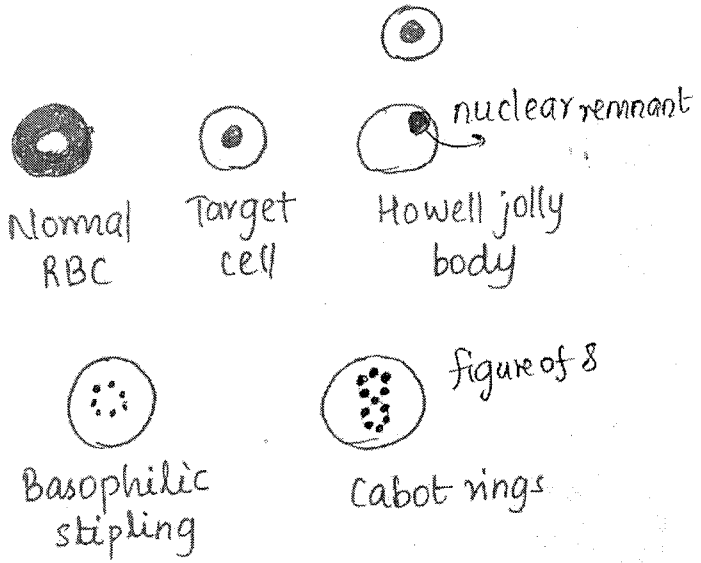 nuclear remnant
Normal
RBC
Target
cell
Howell jolly
body
figure of 8
Basophilic
stipling
Cabot rings